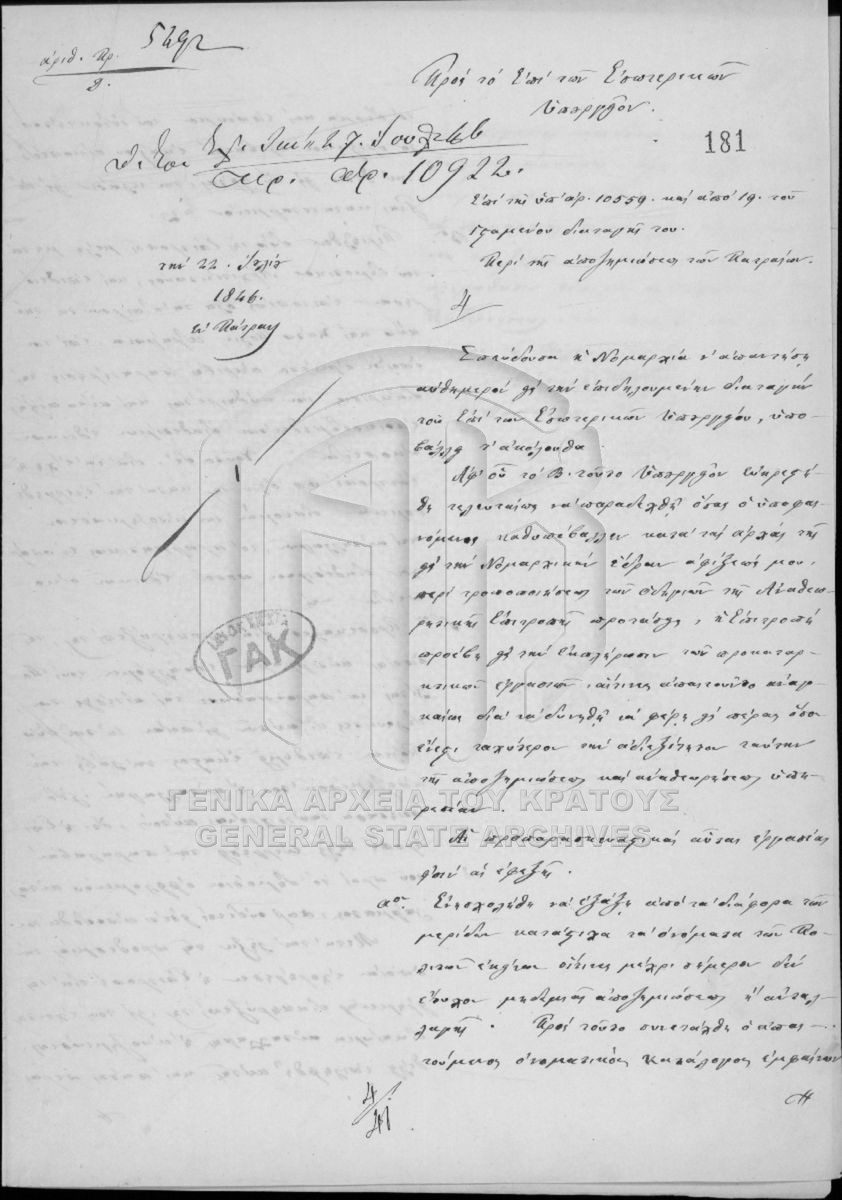 ἀριθ. Πρ. 5292
2.
Πρὸς τὸ ἐπὶ τῶν Ἐσωτερικῶν
Ὑπουργεῖον.
181
27. Ἰουλ 46
Πρ. 10922.
Ἐπὶ τῆς ὑπ' ἀρ. 10559. καὶ ἀπὸ 19. τοῦ
ἱσταμένου διαταγῆς του.
Περὶ τῆς ἀποζημιώσεως τῶν Πατραίων.
τὴν 22. Ἰουλίου
1846.
Ἐν Πάτραις
4
Σπεύδουσα ἡ Νομαρχία ν' ἀπαντήσῃ
αὐθημερὸν εἰς τὴν ἐπιδηλουμένην διαταγὴν
τοῦ Ἐπὶ τῶν Ἐσωτερικῶν Ὑπουργείου, ὑπο-
βάλλει τ' ἀκόλουθα.
Ἀφ' οὗ τὸ Β. τοῦτο Ὑπουργεῖον εὐηρεστή-
θη τελευταίως νὰ παραδεχθῇ ὅσας ὁ ὑποφαι-
νόμενος καθυπέβαλλεν κατὰ τὰς ἀρχὰς τῆς
εἰς τὴν Νομαρχικὴν ἕδραν ἀφίξεώς μου,
περὶ τροποποιήσεως τῶν ὁδηγιῶν τῆς Ἀναθεω-
ρητικῆς Ἐπιτροπῆς προτάσεις, ἡ Ἐπιτροπὴ
προέβη εἰς τὴν ἐκπλήρωσιν τῶν προκαταρ-
κτικῶν ἐργασιῶν, αἵτινες ἀπαιτοῦντο ἀναγ-
καίως διὰ νὰ δυνηθῇ νὰ φέρῃ εἰς πέρας ὅσον
ἔνεστι ταχύτερον τὴν ἀδιεξίτητον ταύτην
τῆς ἀποζημιώσεως καὶ ἀναθεωρήσεως ὑπη-
ρεσίαν.
Αἱ προπαρασκευαστικαὶ αὗται ἐργασίαι
εἰσὶν αἱ ἑφεξῆς.
αον. Ἐνησχολήθη νὰ ἐξάξῃ ἀπὸ τὰ διάφορα τῶν
μερίδων κατάστιχα τὰ ὀνόματα τῶν Πο-
λιτῶν ἐκείνων οἵτινες μέχρι σήμερον δὲν
ἔτυχον μηδεμιᾶς ἀποζημιώσεως ἢ ἀνταλ-
λαγῆς. Πρὸς τοῦτο συνετάχθη ὁ ἀπαι-
τούμενος ὀνομαστικὸς κατάλογος ἐμφαίνων
4/41
ΓΑΚ
ΓΕΝΙΚΑ ΑΡΧΕΙΑ ΤΟΥ ΚΡΑΤΟΥΣ
GENERAL STATE ARCHIVES